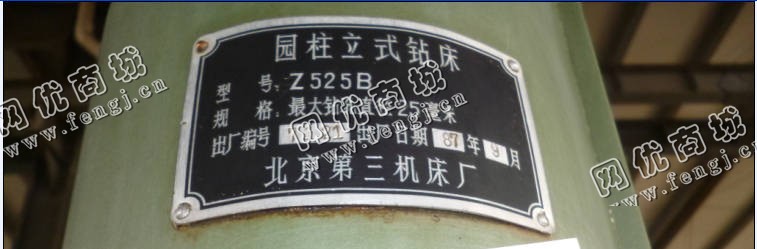 园柱立式钻床
型 号: Z525B
规 格: 最大钻孔直径25毫米
出厂编号 出厂日期 87年9月
北京第三机床厂
网优商城
www.fengj.cn
网优商城
www.fengj.cn
网优商城
www.fengj.cn